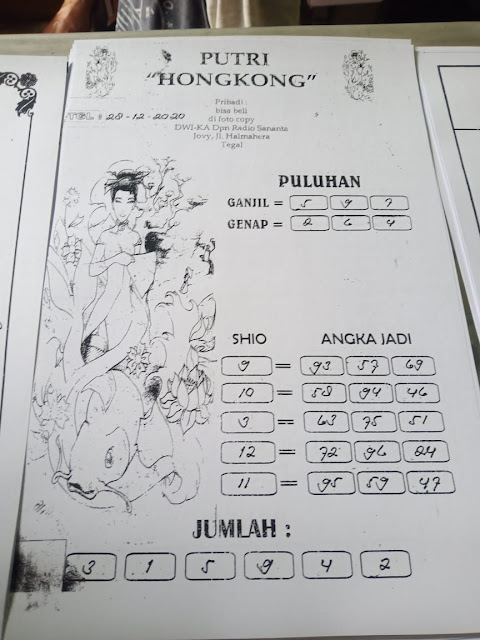 PUTRI
"HONGKONG"
Pribadi :
bisa beli
di foto copy
DWI-KA Dpn Radio Sananta
Jovy, Jl. Halmahera
Tegal
TGL : 28-12-2020
PULUHAN
GANJIL = 5 9 7
GENAP = 2 6 4
SHIO ANGKA JADI
9 = 93 57 69
10 = 58 94 46
3 = 63 75 51
12 = 72 96 24
11 = 95 59 47
JUMLAH :
3 1 5 9 4 2